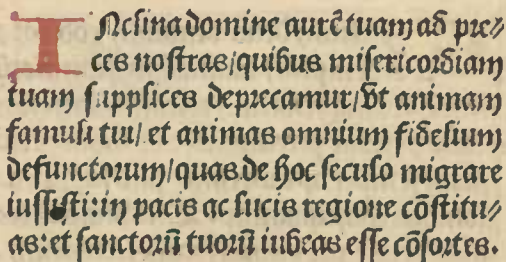 INclina domine aurē tuam ad pre⸗
ces nostras/quibus misericordiam
tuam supplices deprecamur/Vt animam
famuli tui/ et animas omnium fidelium
defunctorum/quas de hoc seculo migrare
iussisti:in pacis ac lucis regione cōstitu⸗
as:et sanctorū tuorū iubeas esse cōsortes.